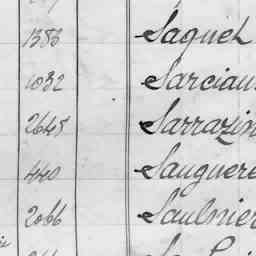 1383 Saquet
1032 Sarciaux
2645 Sarrazin
440 Sauguere
2066 Saulnier